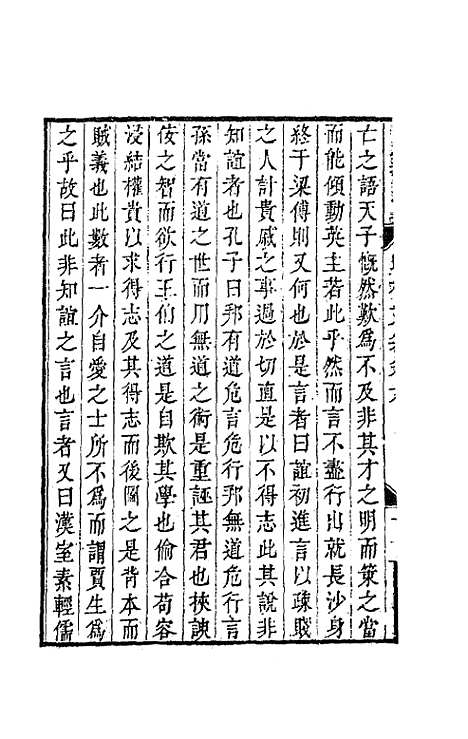 亡之語天子慨然歎為不及非其才之明而策之當
而能傾動英主若此乎然而言不盡行出就長沙身
終于梁傅則又何也於是言者曰誼初進言以疎賤
之人計貴戚之事過於切直是以不得志此其說非
知誼者也孔子曰邦有道危言危行邦無道危行言
孫當有道之世而用無道之術是重誣其君也挾諛
佞之智而欲行王伯之道是自欺其學也偷合苟容
浸結權貴以求得志及其得志而後圖之是背本而
賊義也此數者一介自愛之士所不為而謂賈生為
之乎故曰此非知誼之言也言者又曰漢室素輕儒